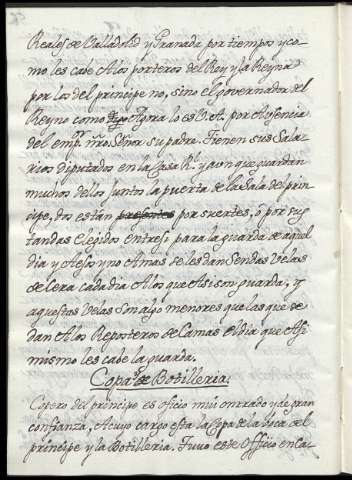 Reales de Valladolid y Granada por tiempos y co-
mo les cabe A los porteros del Rey y la Reyna
por los del principe no, sino el governador del
Reyno como Agora lo es V.A. por Ausencia
del emp.r nro Señor su padre. Tienen sus Sala-
rios diputados en la Casa Rl. y aun que guardan
muchos dellos juntos la puerta de la Sala del prin-
cipe, dos están presentes por suertes, ó por sus
tandas elejidos entresi para la guarda de aquel
dia y A esos y no A mas se les dan Sendas Velas
de Cera cada dia A los que Asi son guarda, y
aquestas Velas son algo menores que las que se
dan A los Reposteros de Camas el dia que Asi
mismo les cabe la guarda.
Copa, de Botilleria.
Copero del principe es oficio mui onrrado y de gran
confianza, A cuyo cargo esta la Copa de la boca del
principe y la Botilleria. Tuvo este Officio en Ca-